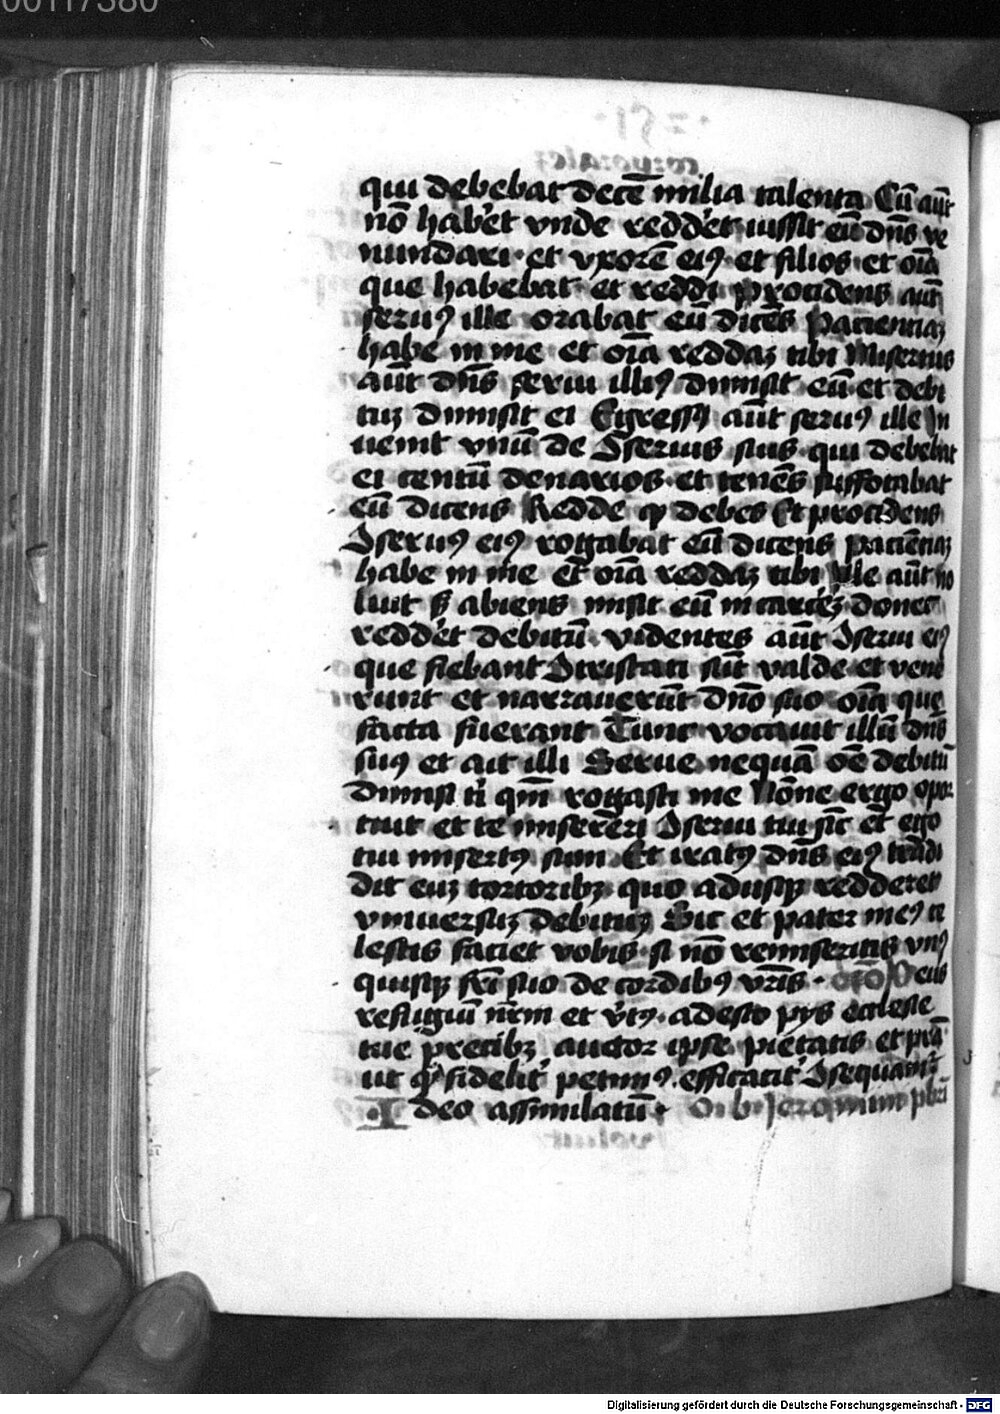 00117380
qui debebat decē milia talenta Cū aūt
nō hab'et vnde redd'et iussit eū dn̄s ve
nundari · et vxorē eiꝰ · et filios · et oīa
que habebat · et reddi procidens aūt
seruꝰ ille orabat eū dicēs Pacientiaꝫ
habe in me et oīa reddaꝫ tibi Misertus
aūt dn̄s serui illiꝰ dimisit eū et debi
tuꝫ dimisit ei Egressꝰ aūt seruꝰ ille In
uenit vnū de ꝯseruis suis qui debebat
ei centū denarios · et tenēs suffocabat
eū dicens Redde qͩ debes Et procidens
ꝯseruꝰ eiꝰ rogabat eū dicens pacientiaꝫ
habe in me et oīa reddaꝫ tibi Ille aūt no
luit sꝫ abiens misit eū in carceꝫ donec
redd'et debitū · videntes aūt ꝯserui eiꝰ
que fiebant ꝯtristati sūt valde et vene
runt et narrauerūt dn̄o suo oīa que
facta fuerant Tunc vocauit illū dn̄s
suꝰ et ait illi Serue nequā oē debitū
dimisi t' qm̄ rogasti me Nōne ergo opor
tuit et te misereri ꝯserui tui sic̄ et ego
tui misertꝰ sum Et iratꝰ dn̄s eiꝰ tradi
dit euꝫ tortoribꝫ quo adusqꝫ redderet
vniuersuꝫ debituꝫ Sic et pater meꝰ ce
lestis faciet vobis · si nō remiseritis vnꝰ
quisqꝫ fr̄i suo de cordibꝰ vr̄is · or̄o Deus
refugiū nr̄m et v'tꝰ · adesto pijs ecclesie
tue precibꝫ auctor ipse pietatis et pr̄a
ut qͩ fidelit' petimꝰ · efficacit' ꝯsequamᷣ
· I deo assimilatū · Jeronimum pbr̄i
Digitalisierung gefördert durch die Deutsche Forschungsgemeinschaft - DFG